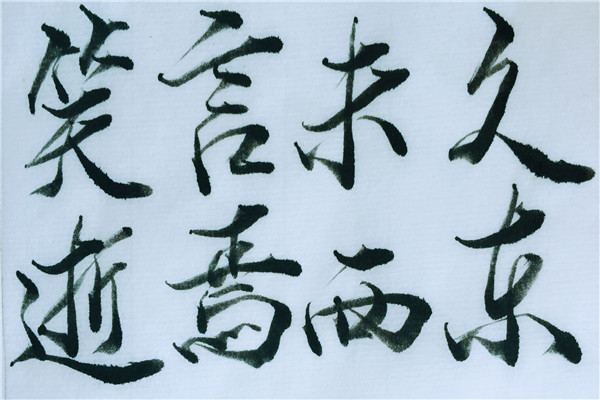 笑言未久
逝焉西东